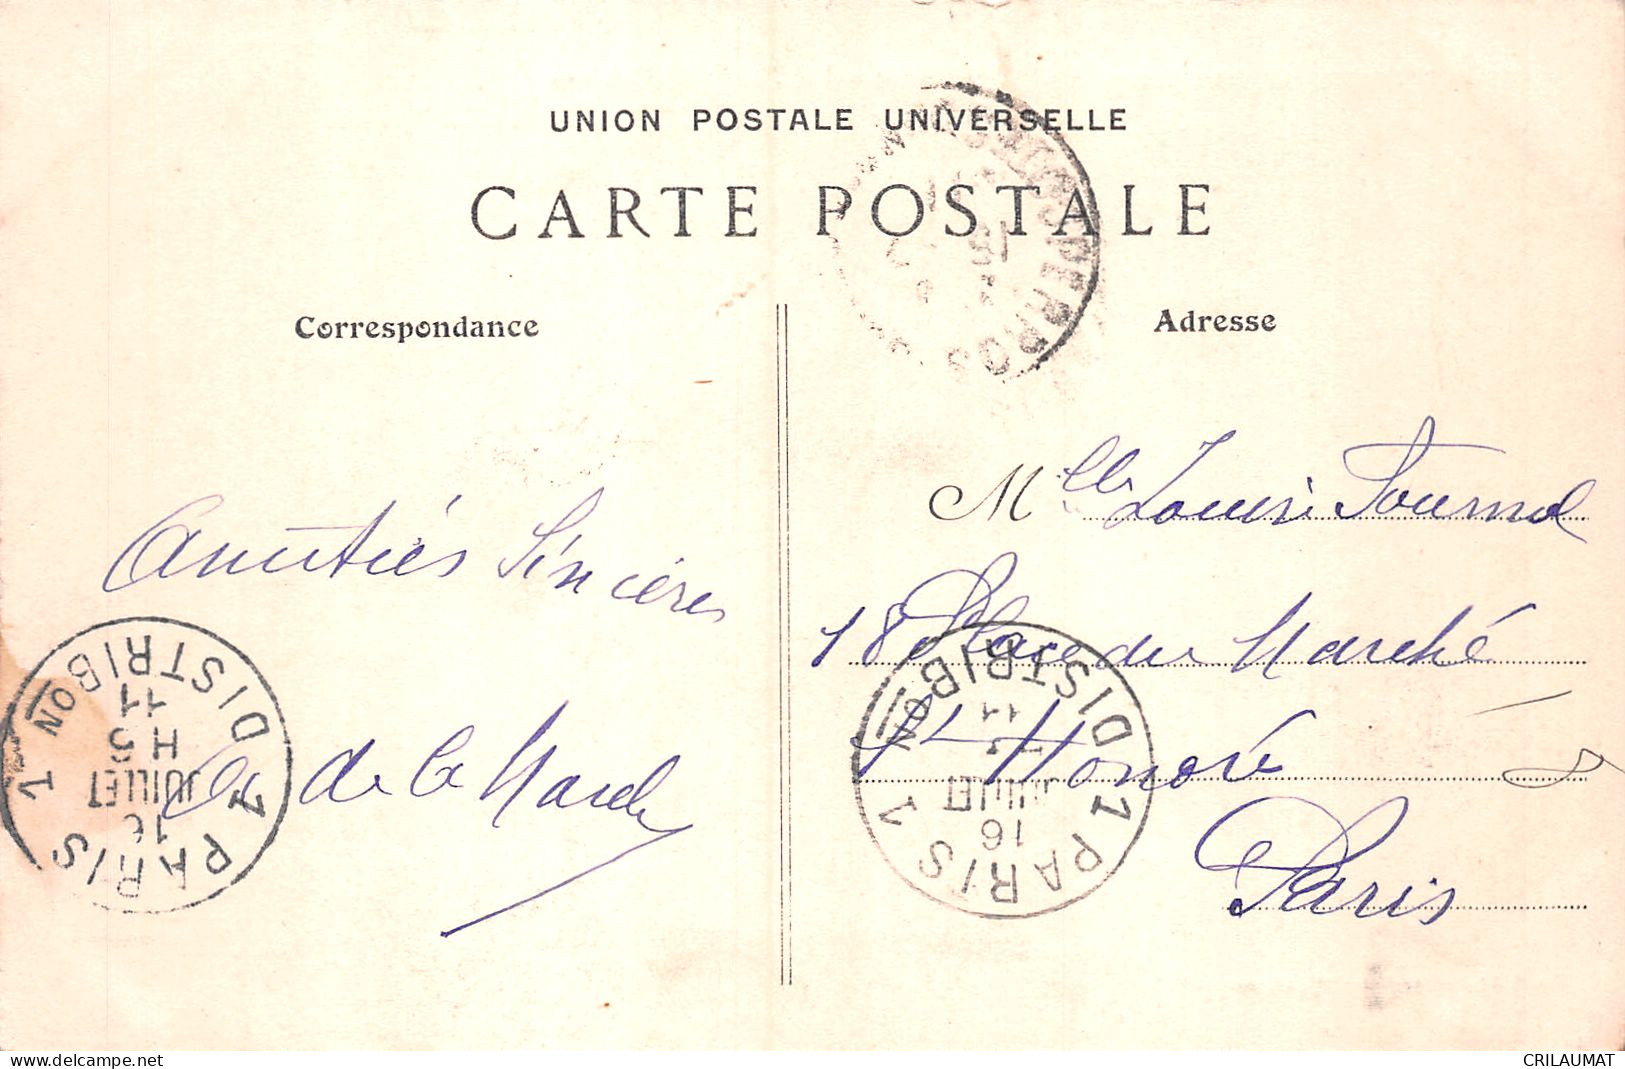 UNION POSTALE UNIVERSELLE
CARTE POSTALE
Correspondance
Adresse
Amitiés Sincères
de la
Mlle Louise Tournol
18 Place du Marché
St Honoré
Paris
PARIS 1 DISTRIBON
16
JUILLET
H 5
11
1 PARIS 1 DISTRIBON
16
JUILLET
11
delcampe.net
CRILAUMAT